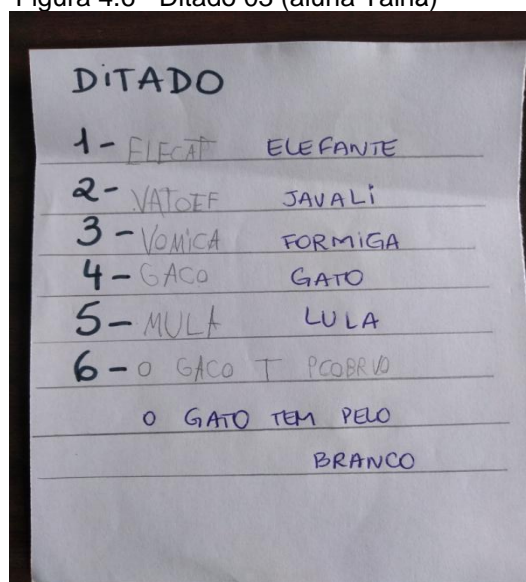 Figura 4.6 - Ditado 03 (aluna Taina)
DiTADO
1- ELECAT ELEFANTE
2- VATOEF JAVALi
3- VOMiCA FORMiGA
4- GACO GATO
5- MULA LULA
6- O GACO T PCOBRVO
O GATO TEM PELO
BRANCO